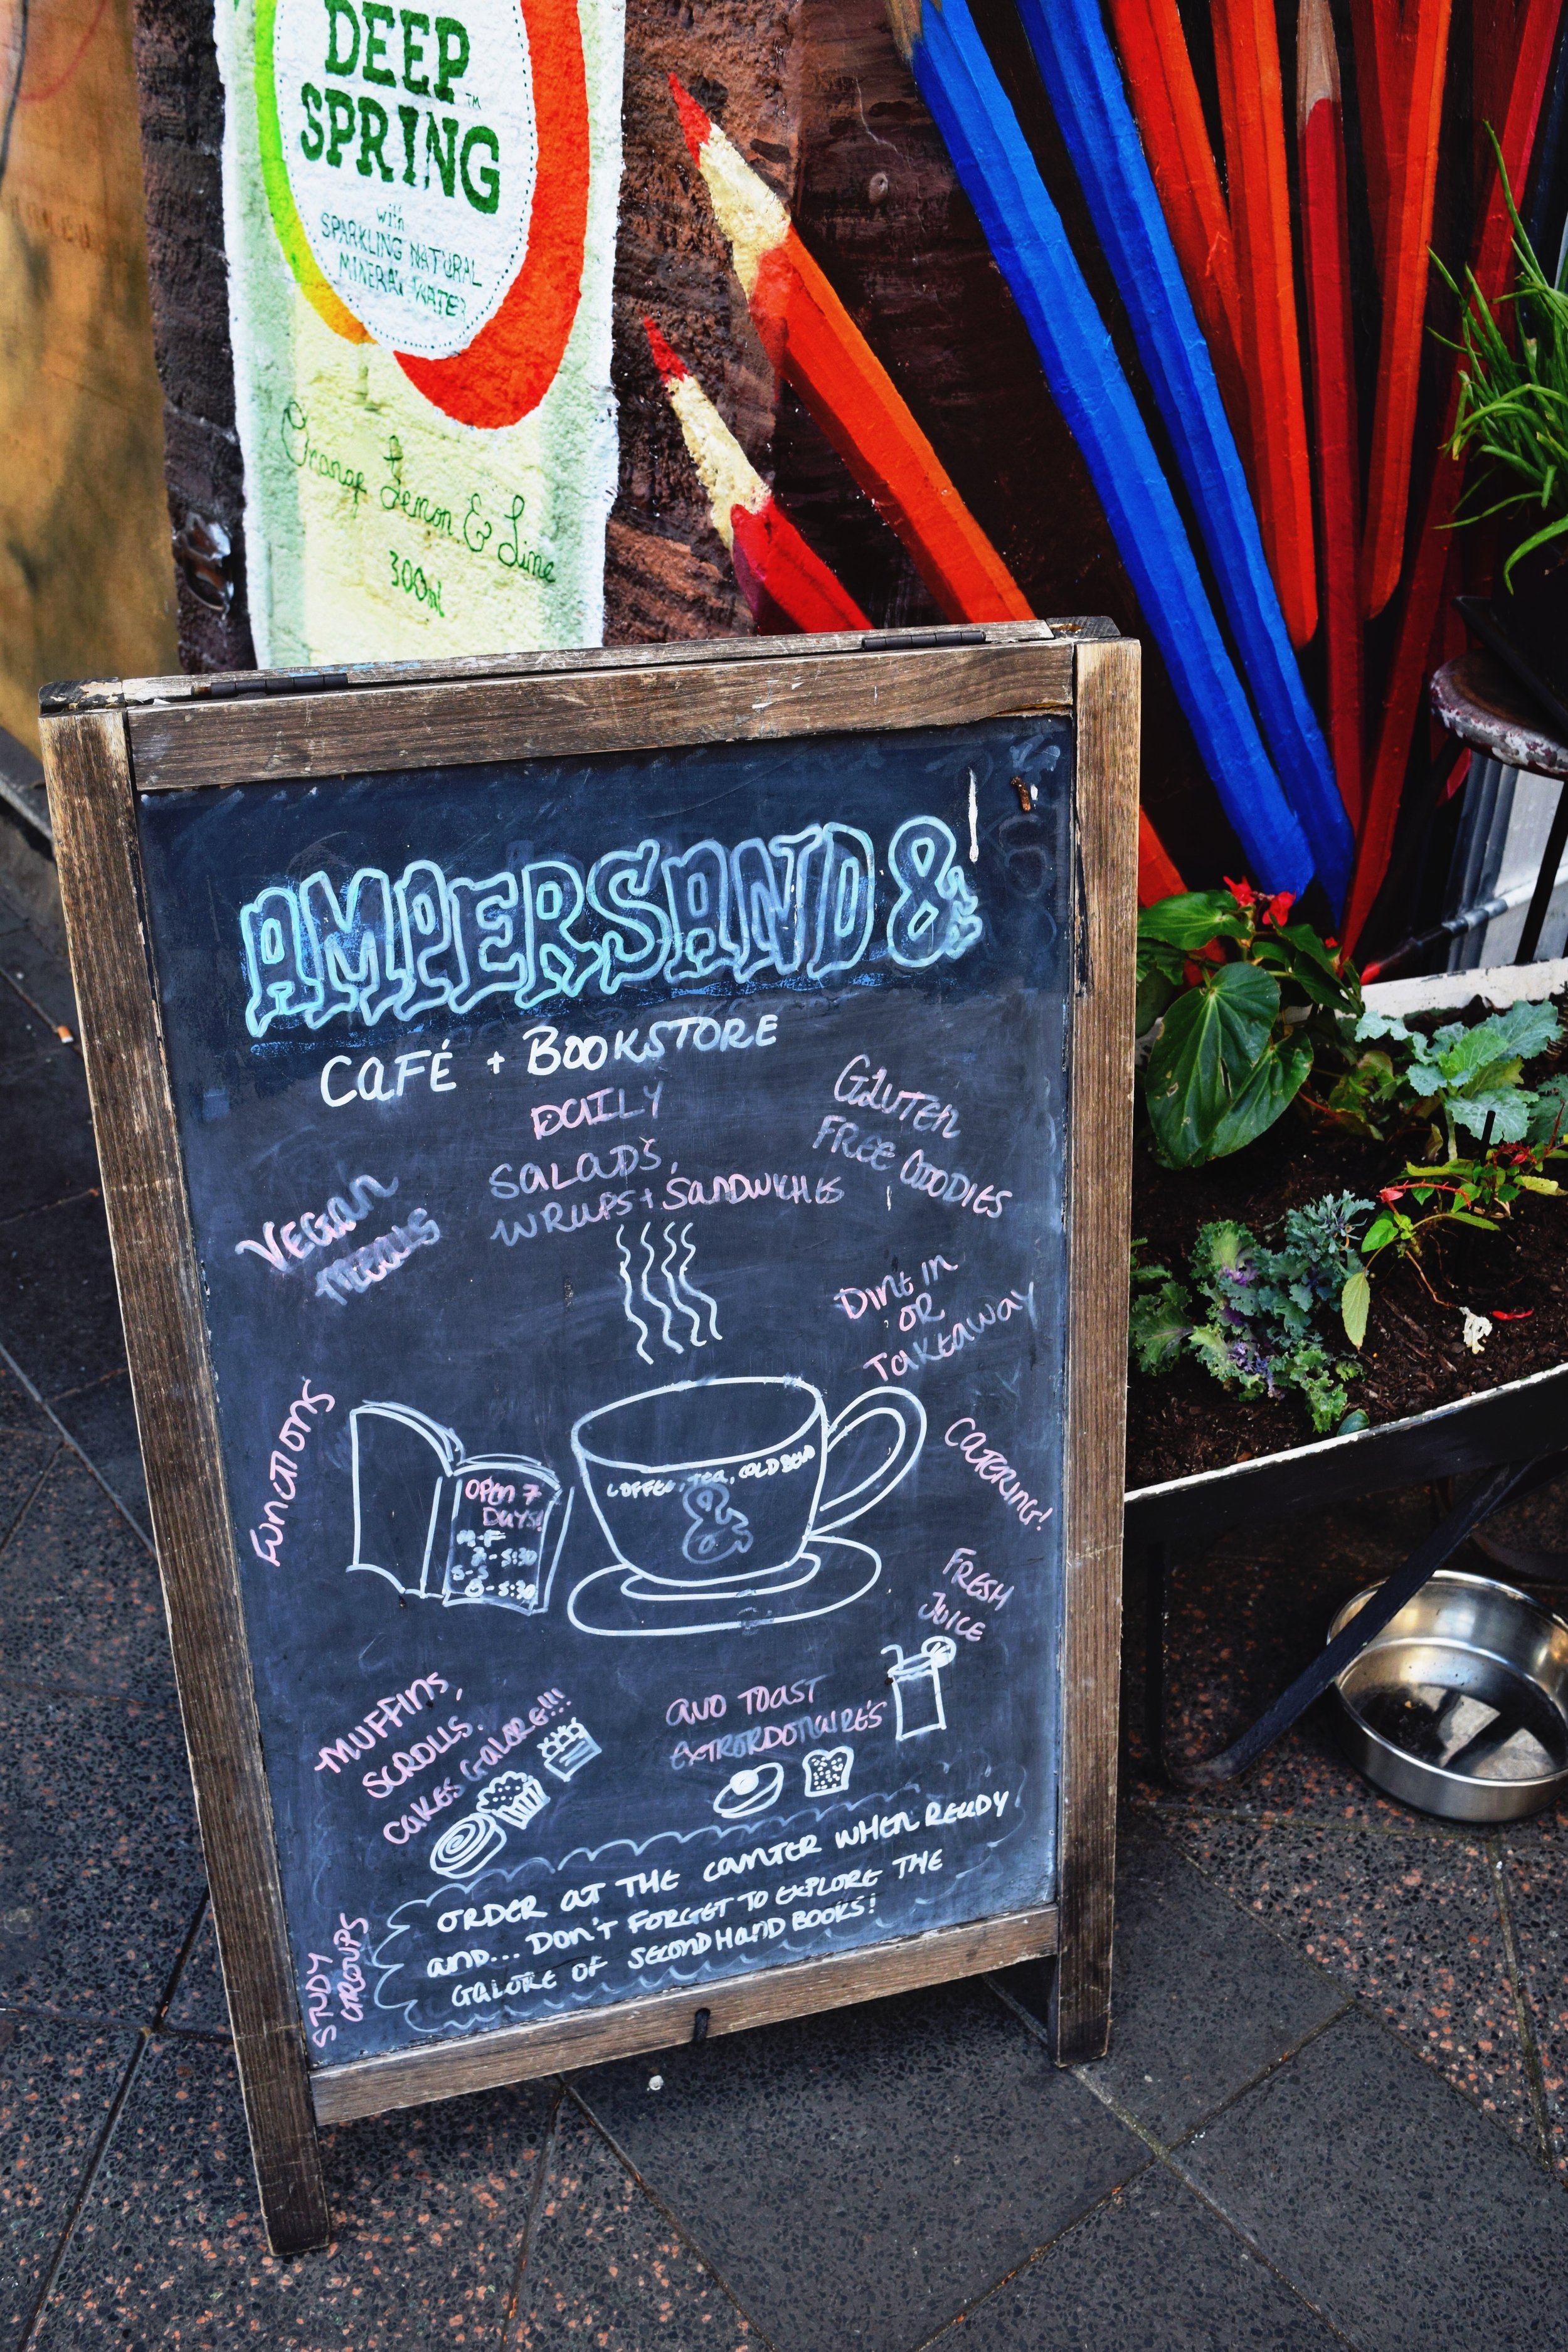 DEEP
SPRING
TM
with
SPARKLING NATURAL
MINERAL WATER
Orange Lemon & Lime
300ml
AMPERSAND &
CAFÉ + BOOKSTORE
DAILY
SALADS,
WRAPS + SANDWICHES
GLUTEN
FREE GOODIES
VEGAN
MEALS
DINE IN
OR
TAKEAWAY
FUNCTIONS
CATERING!
OPEN 7
DAYS!
M-F
- 5:30
S-S
8 - 5:30
COFFEE, TEA, COLD
&
FRESH
JUICE
MUFFINS,
SCROLLS,
CAKES GALORE!!!
AVO TOAST
EXTRORDONAIRE'S
ORDER AT THE COUNTER WHEN READY
AND... DON'T FORGET TO EXPLORE THE
GALORE OF SECONDHAND BOOKS!
STUDY
GROUPS